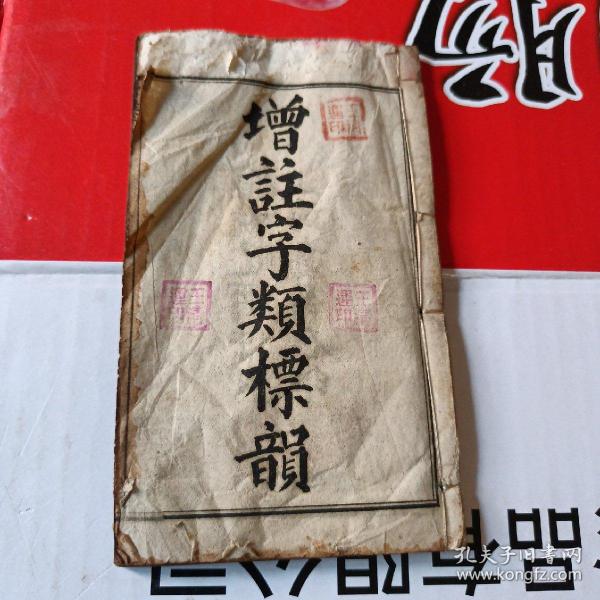 增註字類標韻
品有限公司
孔夫子旧书网
www.kongfz.com